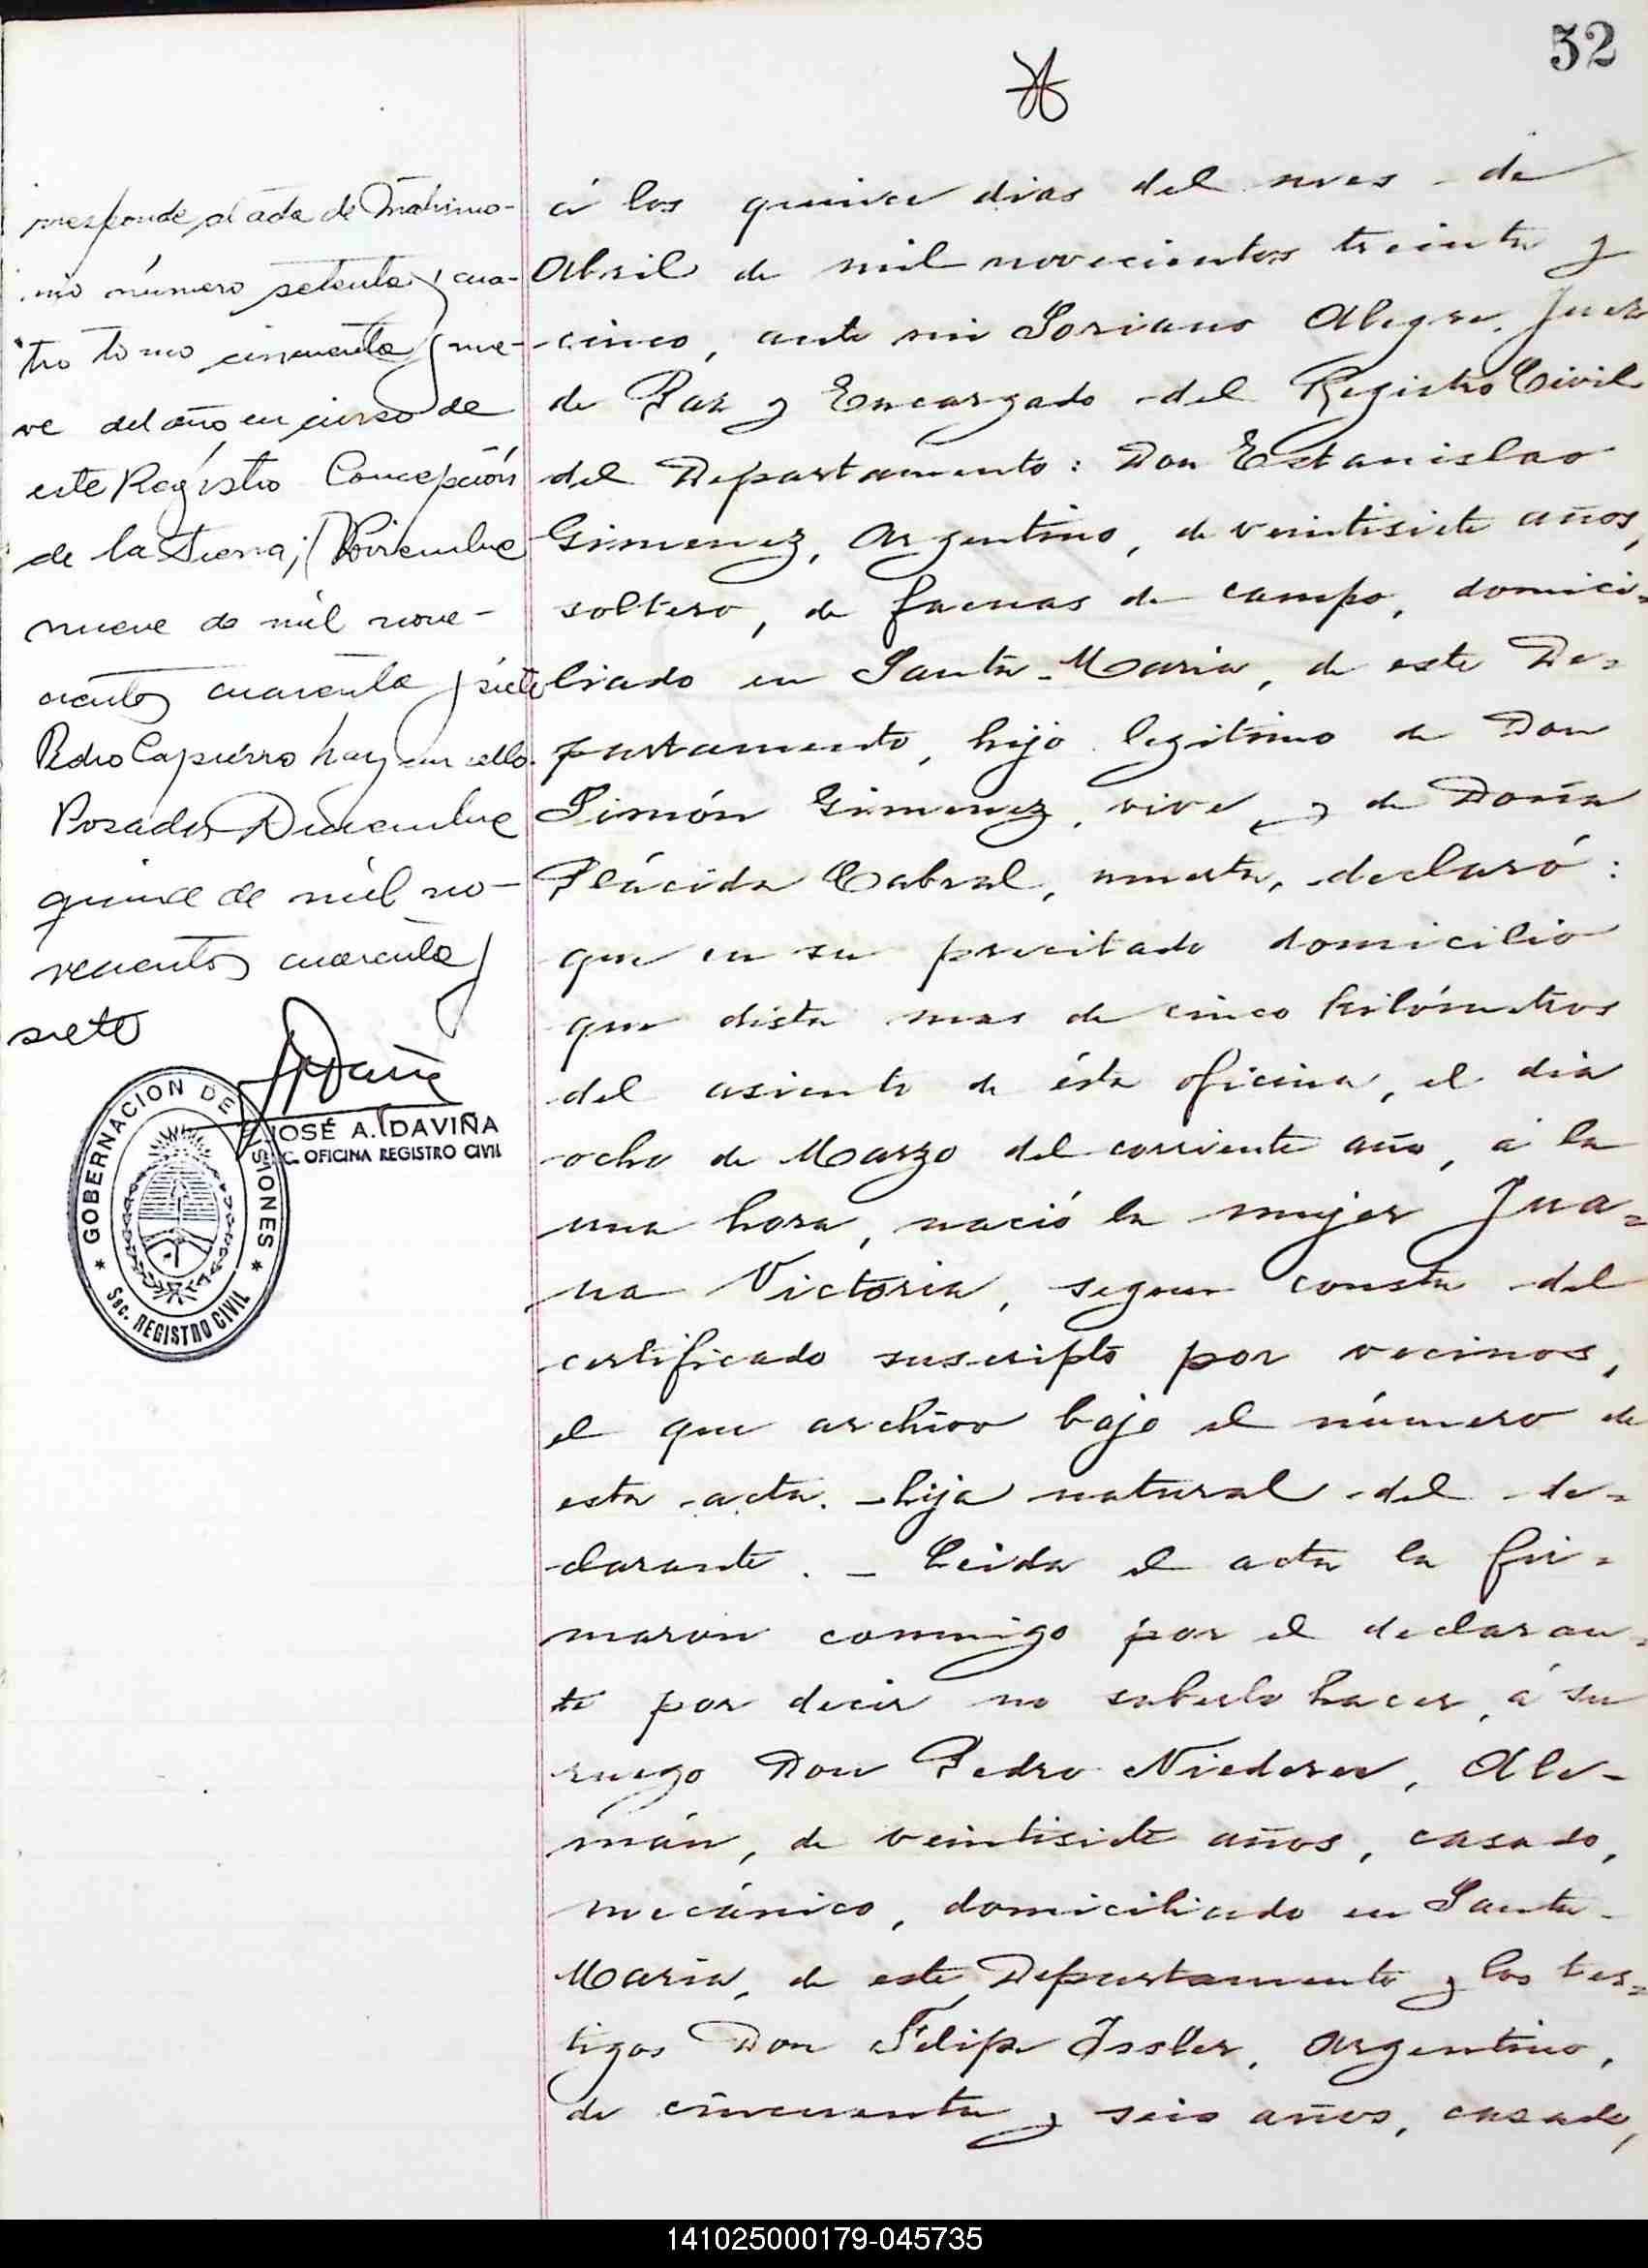 52
rresponde al acta de Matrimo-
nio número setenta y cua-
tro tomo cincuenta y nue-
ve del año en curso de
este Registro Concepción
de la Sierra; Noviembre
nueve de mil nove-
cientos cuarenta y siete
Pedro Capiérro hay un sello.
Posadas Diciembre
quince de mil no-
vecientos cuarenta y
siete
JOSÉ A. DAVIÑA
C. OFICINA REGISTRO CIVIL
GOBERNACION DE MISIONES
Sec. REGISTRO CIVIL
á los quince dias del mes de
Abril de mil novecientos treinta y
cinco, ante mi Soriano Alegre, Juez
de Paz y Encargado del Registro Civil
del Departamento: Don Estanislao
Gimenez, Argentino, de veintisiete años,
soltero, de faenas de campo, domici-
liado en Santa Maria, de este De-
partamento, hijo legitimo de Don
Simón Gimenez, vive y de Doña
Plácida Cabral, muerta, declaró:
que en su precitado domicilio
que dista mas de cinco kilómetros
del asiento de ésta oficina, el dia
ocho de Marzo del corriente año, á la
una hora, nació la mujer Jua-
na Victoria, segun consta del
certificado suscripto por vecinos,
el que archivo bajo el número de
esta acta. - hija natural del de-
clarante. - Leida el acta la fir-
maron conmigo por el declaran-
te por decir no saberlo hacer, á su
ruego Don Pedro Niederer, Ale-
mán, de veintisiete años, casado,
mecánico, domiciliado en Santa
Maria, de este Departamento y los tes-
tigos Don Felipe Issler, Argentino,
de cincuenta y seis años, casado,
141025000179-045735